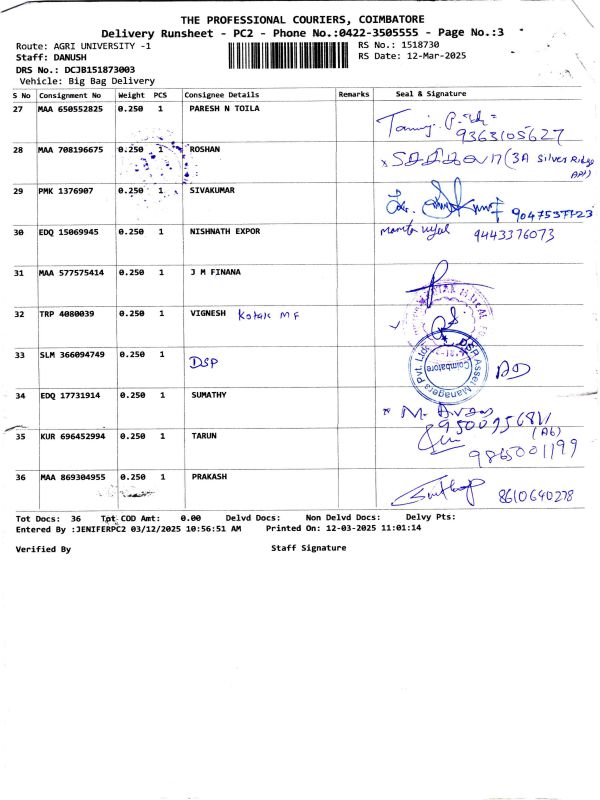 THE PROFESSIONAL COURIERS, COIMBATORE
Delivery Runsheet - PC2 - Phone No.:0422-3505555 - Page No.:3
Route: AGRI UNIVERSITY -1
RS No.: 1518730
Staff: DANUSH
RS Date: 12-Mar-2025
DRS No.: DCJB151873003
Vehicle: Big Bag Delivery
S No Consignment No Weight PCS Consignee Details Remarks Seal & Signature
27 MAA 650552825 0.250 1 PARESH N TOILA
9363105627
28 MAA 708196675 0.250 1 ROSHAN
(3A Silver Ridge
29 PMK 1376907 0.250 1 SIVAKUMAR
9047537723
30 EDQ 15069945 0.250 1 NISHNATH EXPOR
9443376073
31 MAA 577575414 0.250 1 J M FINANA
32 TRP 4080039 0.250 1 VIGNESH Kotak MF
33 SLM 366094749 0.250 1 DSP
DSP Asset Managers Pvt. Ltd.
Coimbatore
34 EDQ 17731914 0.250 1 SUMATHY
35 KUR 696452994 0.250 1 TARUN
(A6)
9865001199
36 MAA 869304955 0.250 1 PRAKASH
8610640278
Tot Docs: 36 Tot COD Amt: 0.00 Delvd Docs: Non Delvd Docs: Delvy Pts:
Entered By :JENIFERPC2 03/12/2025 10:56:51 AM Printed On: 12-03-2025 11:01:14
Verified By Staff Signature